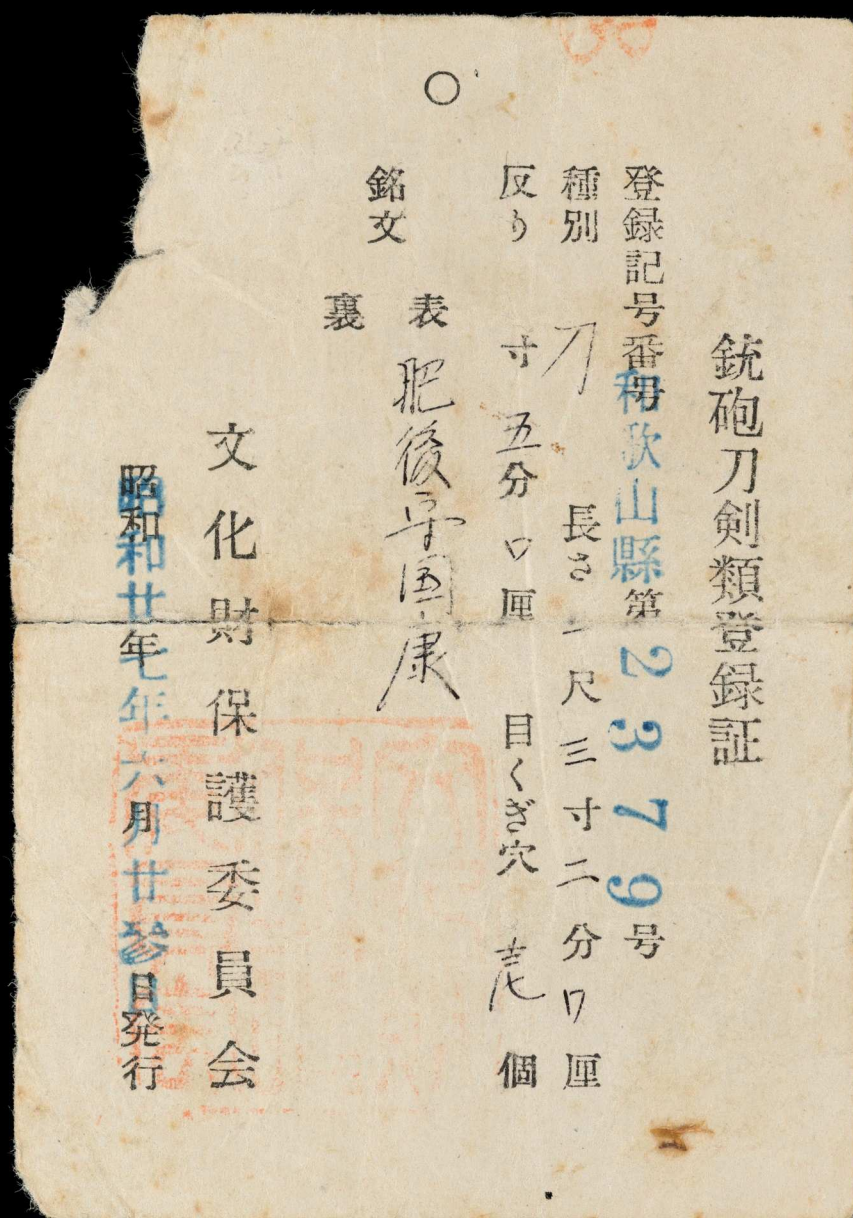 銃砲刀剣類登録証
登録記号番号 和歌山縣 第 2379 号
種別 刀 長さ 一尺 三寸 二分 ワ厘
反り 寸 五分 ワ厘 目くぎ穴 壱 個
銘文 表 肥後守国康
裏
文化財保護委員会
昭和 年 月 日発行
昭和廿七年六月廿参日